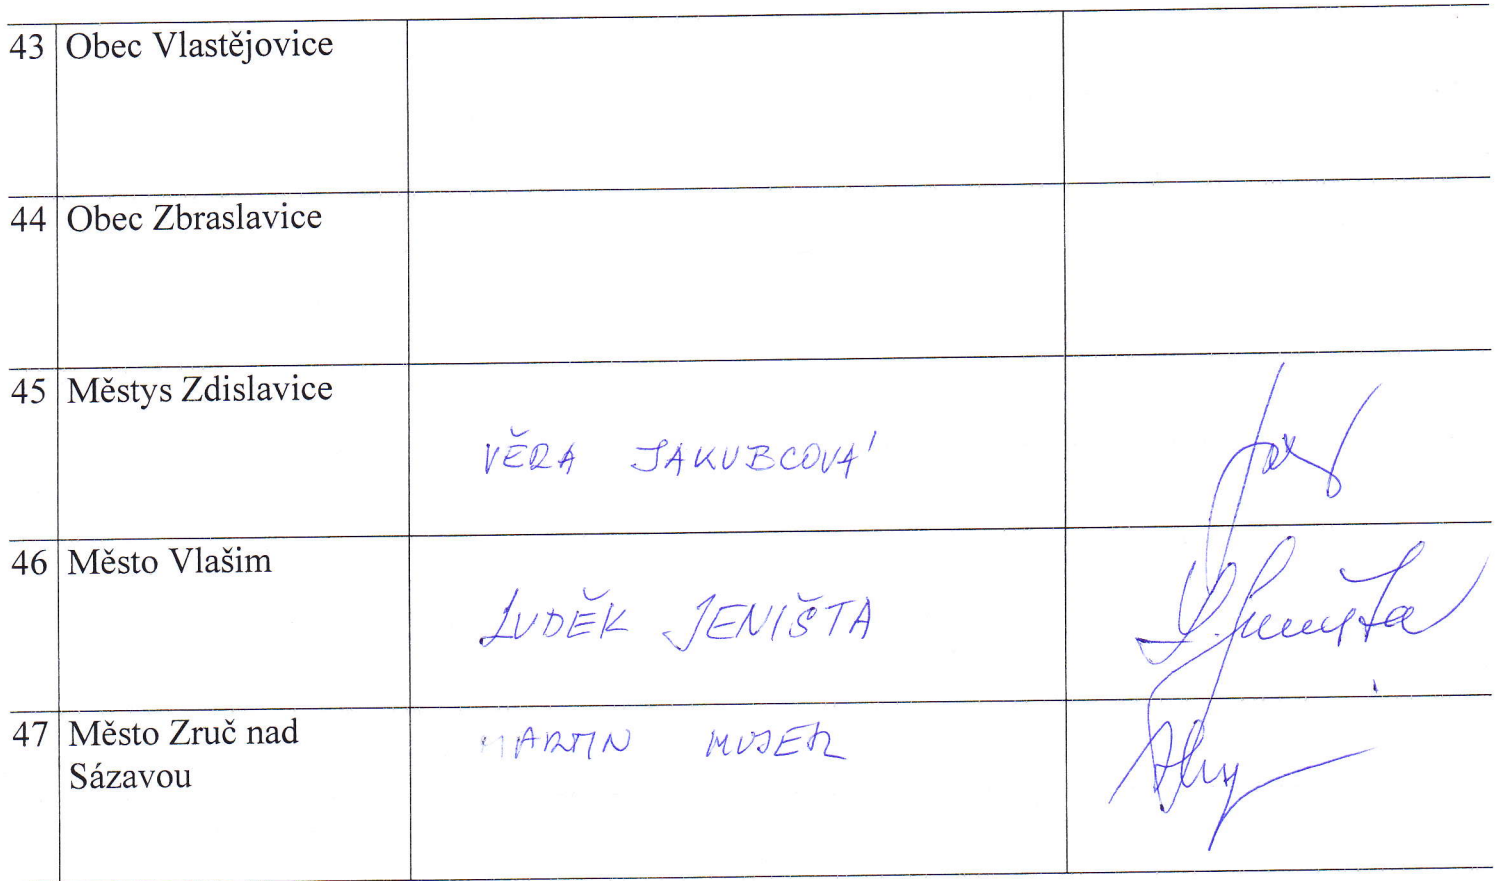 43 Obec Vlastějovice
44 Obec Zbraslavice
45 Městys Zdislavice
VĚRA JAKUBCOVÁ
46 Město Vlašim
LUDĚK JENIŠTA
L. Jeništa
47 Město Zruč nad
Sázavou
MARTIN